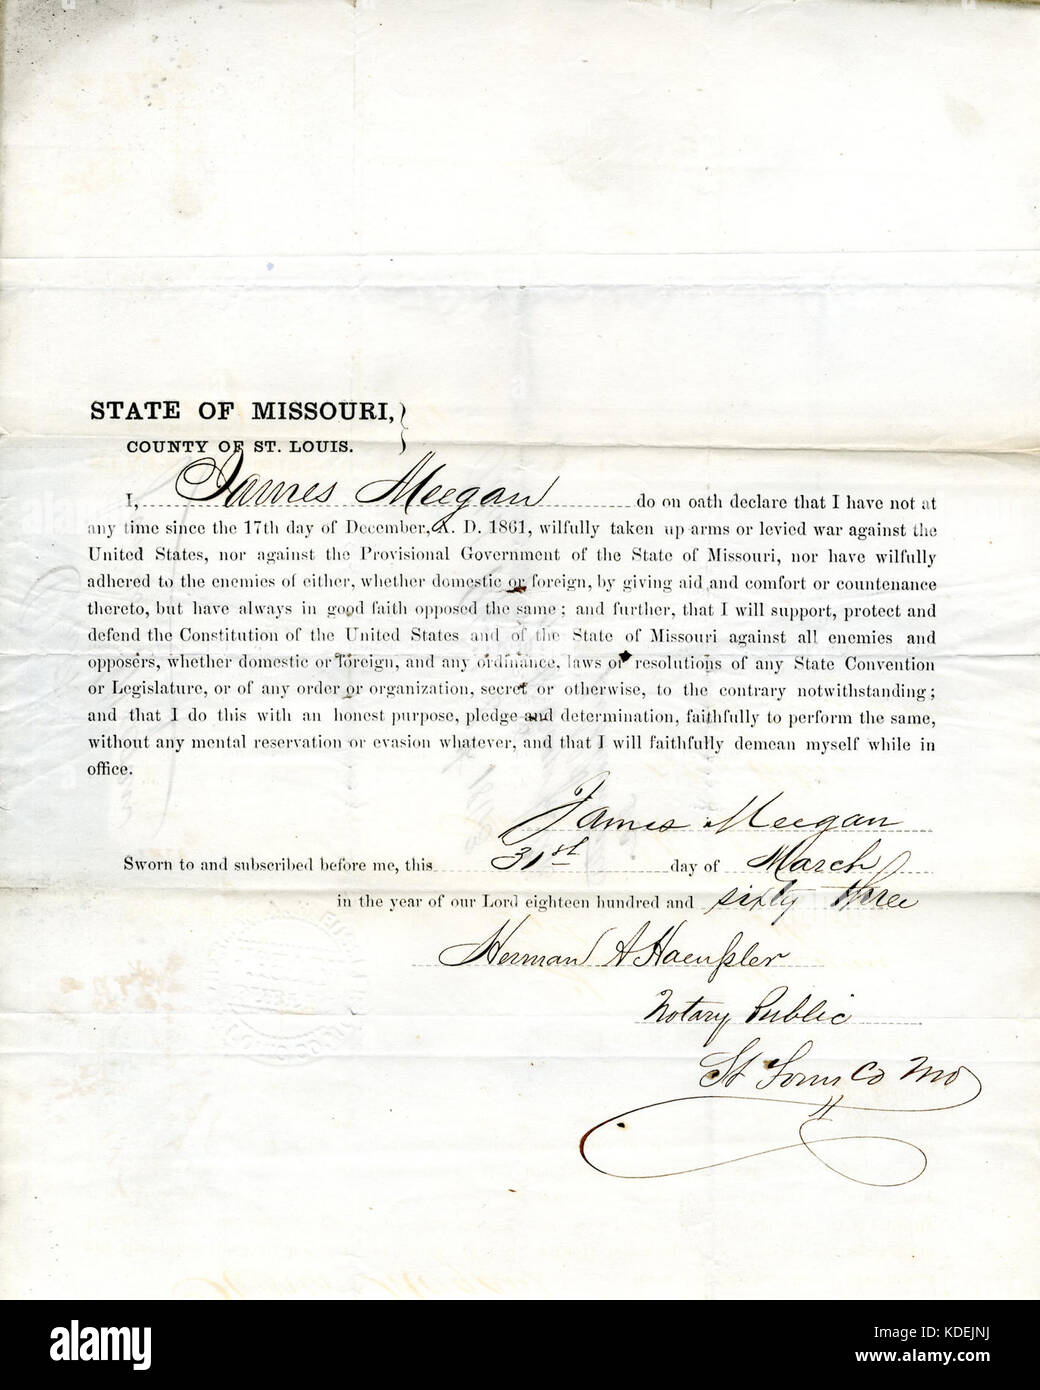 STATE OF MISSOURI,
COUNTY OF ST. LOUIS.
I, James Meegan do on oath declare that I have not at
any time since the 17th day of December, A. D. 1861, wilfully taken up arms or levied war against the
United States, nor against the Provisional Government of the State of Missouri, nor have wilfully
adhered to the enemies of either, whether domestic or foreign, by giving aid and comfort or countenance
thereto, but have always in good faith opposed the same; and further, that I will support, protect and
defend the Constitution of the United States and of the State of Missouri against all enemies and
opposers, whether domestic or foreign, and any ordinance, laws or resolutions of any State Convention
or Legislature, or of any order or organization, secret or otherwise, to the contrary notwithstanding;
and that I do this with an honest purpose, pledge and determination, faithfully to perform the same,
without any mental reservation or evasion whatever, and that I will faithfully demean myself while in
office.
James Meegan
Sworn to and subscribed before me, this 31st day of March
in the year of our Lord eighteen hundred and sixty three
Herman A Haeußler
Notary Public
St Louis Co Mo
alamy
Image ID: KDEJNJ
www.alamy.com